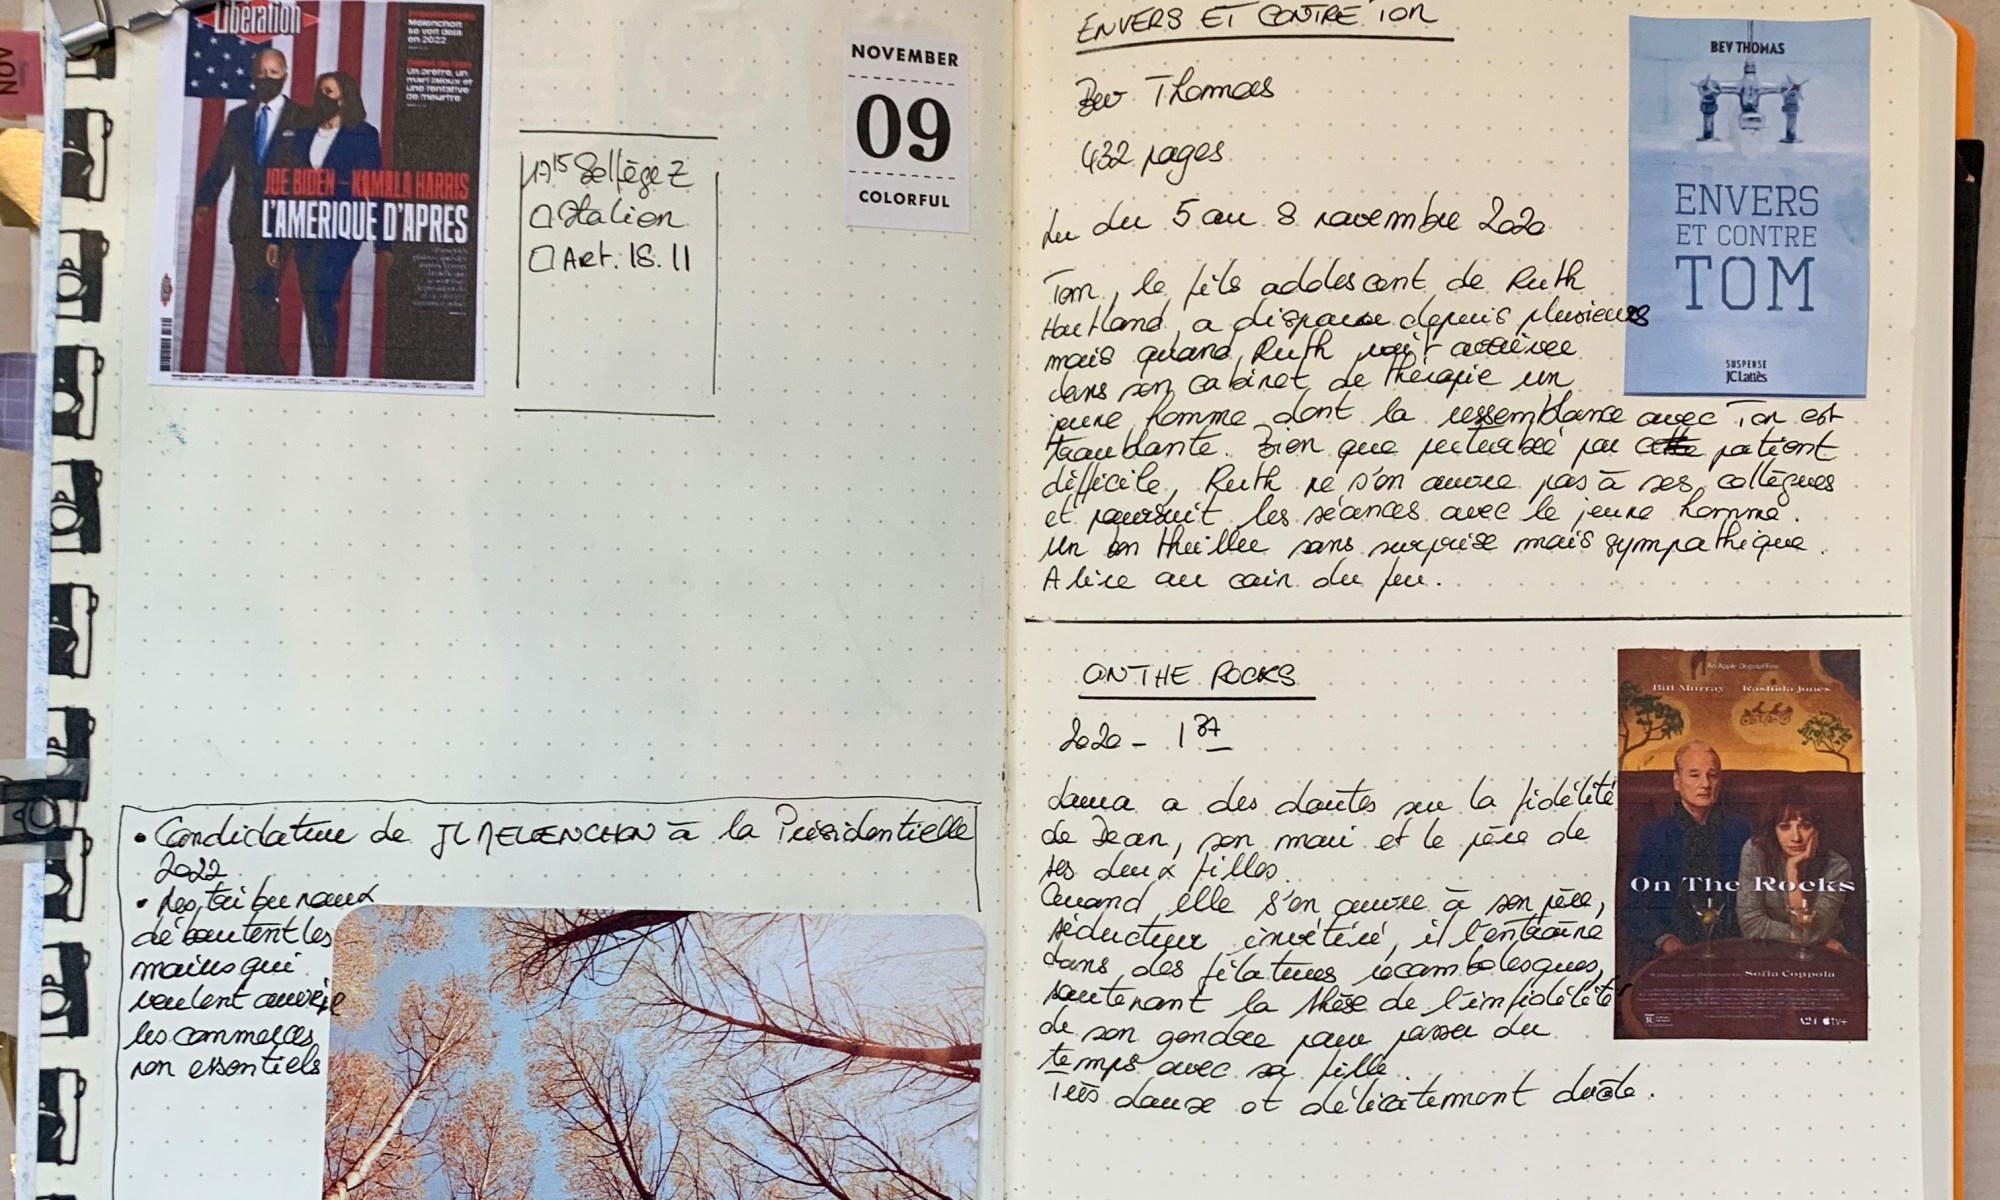 NOV
Libération
Mélenchon
se voit déjà
en 2022
Un prêtre, un
mari jaloux et
une tentative
de meurtre
JOE BIDEN - KAMALA HARRIS
L'AMERIQUE D'APRES
17 15 Solfège 2
Italien
Art. 18.11
NOVEMBER
09
COLORFUL
• Candidature de JL MELENCHON à la Présidentielle
2022
• Les tribunaux
déboutent les
maires qui
veulent ouvrir
les commerces
non essentiels
ENVERS ET CONTRE TOM
Bev Thomas
432 pages
Lu du 5 au 8 novembre 2020
Tom, le fils adolescent de Ruth
Hartland, a disparu depuis plusieurs
mois quand Ruth voit arriver
dans son cabinet de thérapie un
jeune homme dont la ressemblance avec Tom est
troublante. Bien que perturbée par ce patient
difficile, Ruth ne s'en ouvre pas à ses collègues
et poursuit les séances avec le jeune homme.
Un bon thriller sans surprise mais sympathique.
A lire au coin du feu.
BEV THOMAS
ENVERS
ET CONTRE
TOM
SUSPENSE
JC Lattès
ON THE ROCKS
2020 - 1 37
Laura a des doutes sur la fidélité
de Dean, son mari et le père de
ses deux filles.
Quand elle s'en ouvre à son père,
séducteur invétéré, il l'entraîne
dans des filatures rocambolesques,
soutenant la thèse de l'infidélité
de son gendre pour passer du
temps avec sa fille.
Très doux et délicatement drôle.
An Apple Original Film
Bill Murray Rashida Jones
On The Rocks
Sofia Coppola
R
A24 tv+